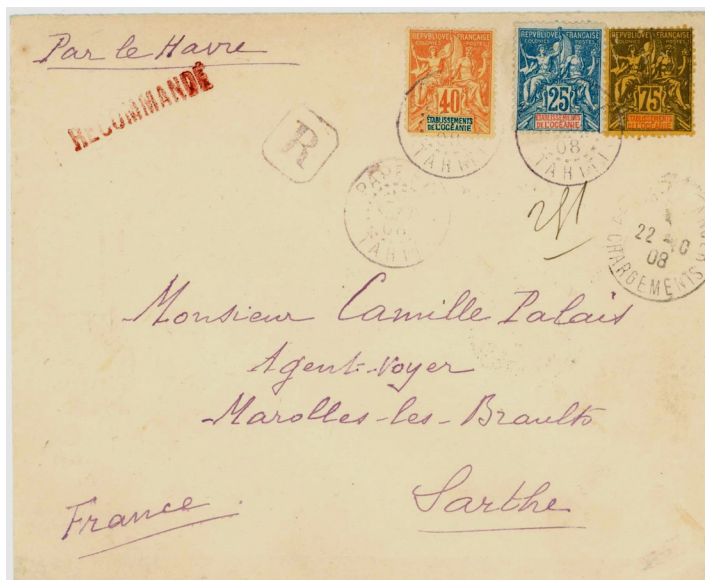 Par le Havre
RECOMMANDÉ
R
REPVBLIQVE FRANÇAISE
COLONIES POSTES
40
ÉTABLISSEMENTS
DE L'OCÉANIE
REPVBLIQVE FRANÇAISE
COLONIES POSTES
25
ÉTABLISSEMENTS
DE L'OCÉANIE
REPVBLIQVE FRANÇAISE
COLONIES POSTES
75
ÉTABLISSEMENTS
DE L'OCÉANIE
TAHITI
08
TAHITI
PAPE
TAHITI
22
08
CHARGEMENTS
Monsieur Camille Palais
Agent-voyer
Marolles-les-Braults
Sarthe
France